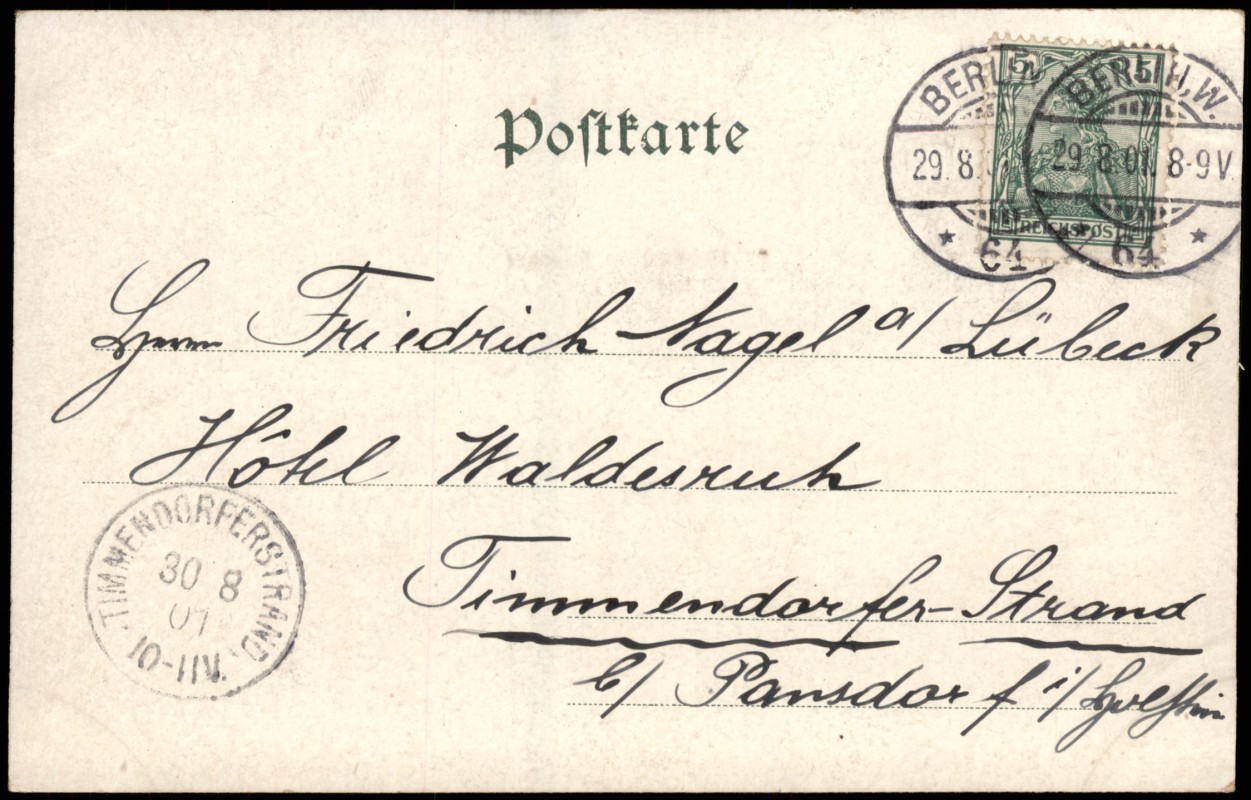 Postkarte
5 5
REICHSPOST
BERLIN
29.8.
64
BERLIN, W.
29.8.01. 8-9V.
64
Herrn Friedrich Nagel a/ Lübeck
Hôtel Waldesruh
Timmendorfer-Strand
b/ Pansdorf i/ Holstein
TIMMENDORFERSTRAND.
30 8
01
10-11N.